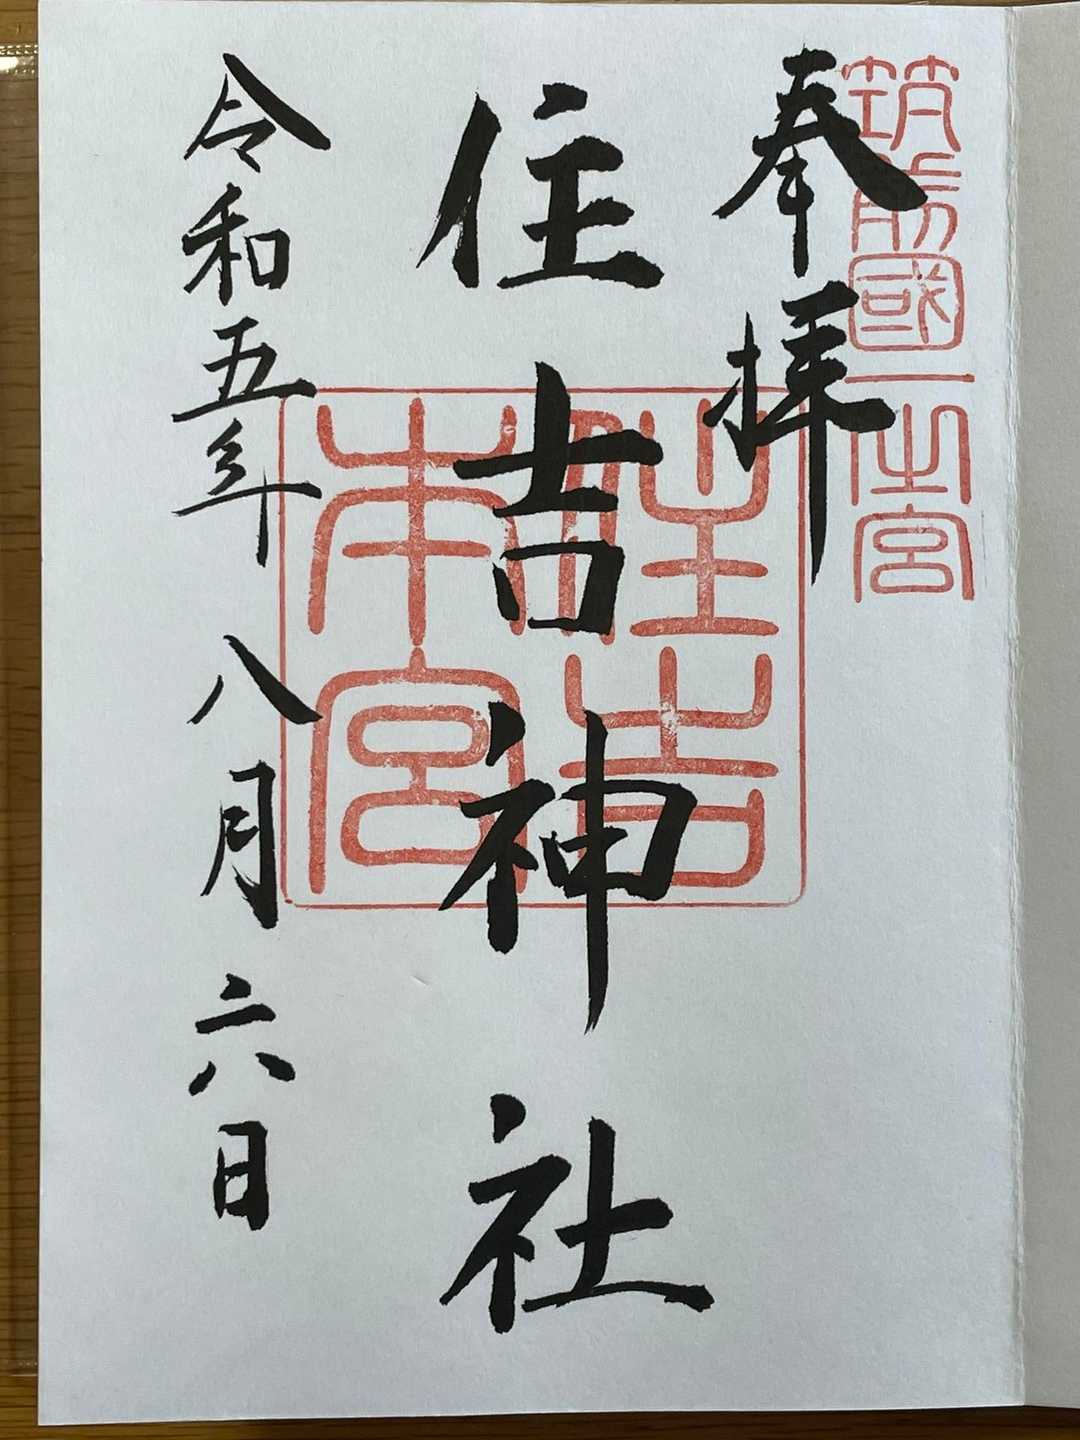 筑前國一之宮
奉拝
住吉神社
住吉
本宮
令和五年八月六日